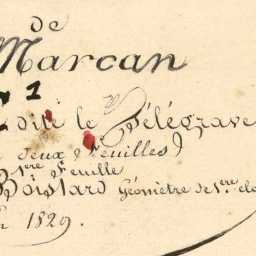 de
Marcan
1
dite le Télégrave
deux Feuilles)
1ere Feuille
Boistard Géomètre de 1ere cla
1829.